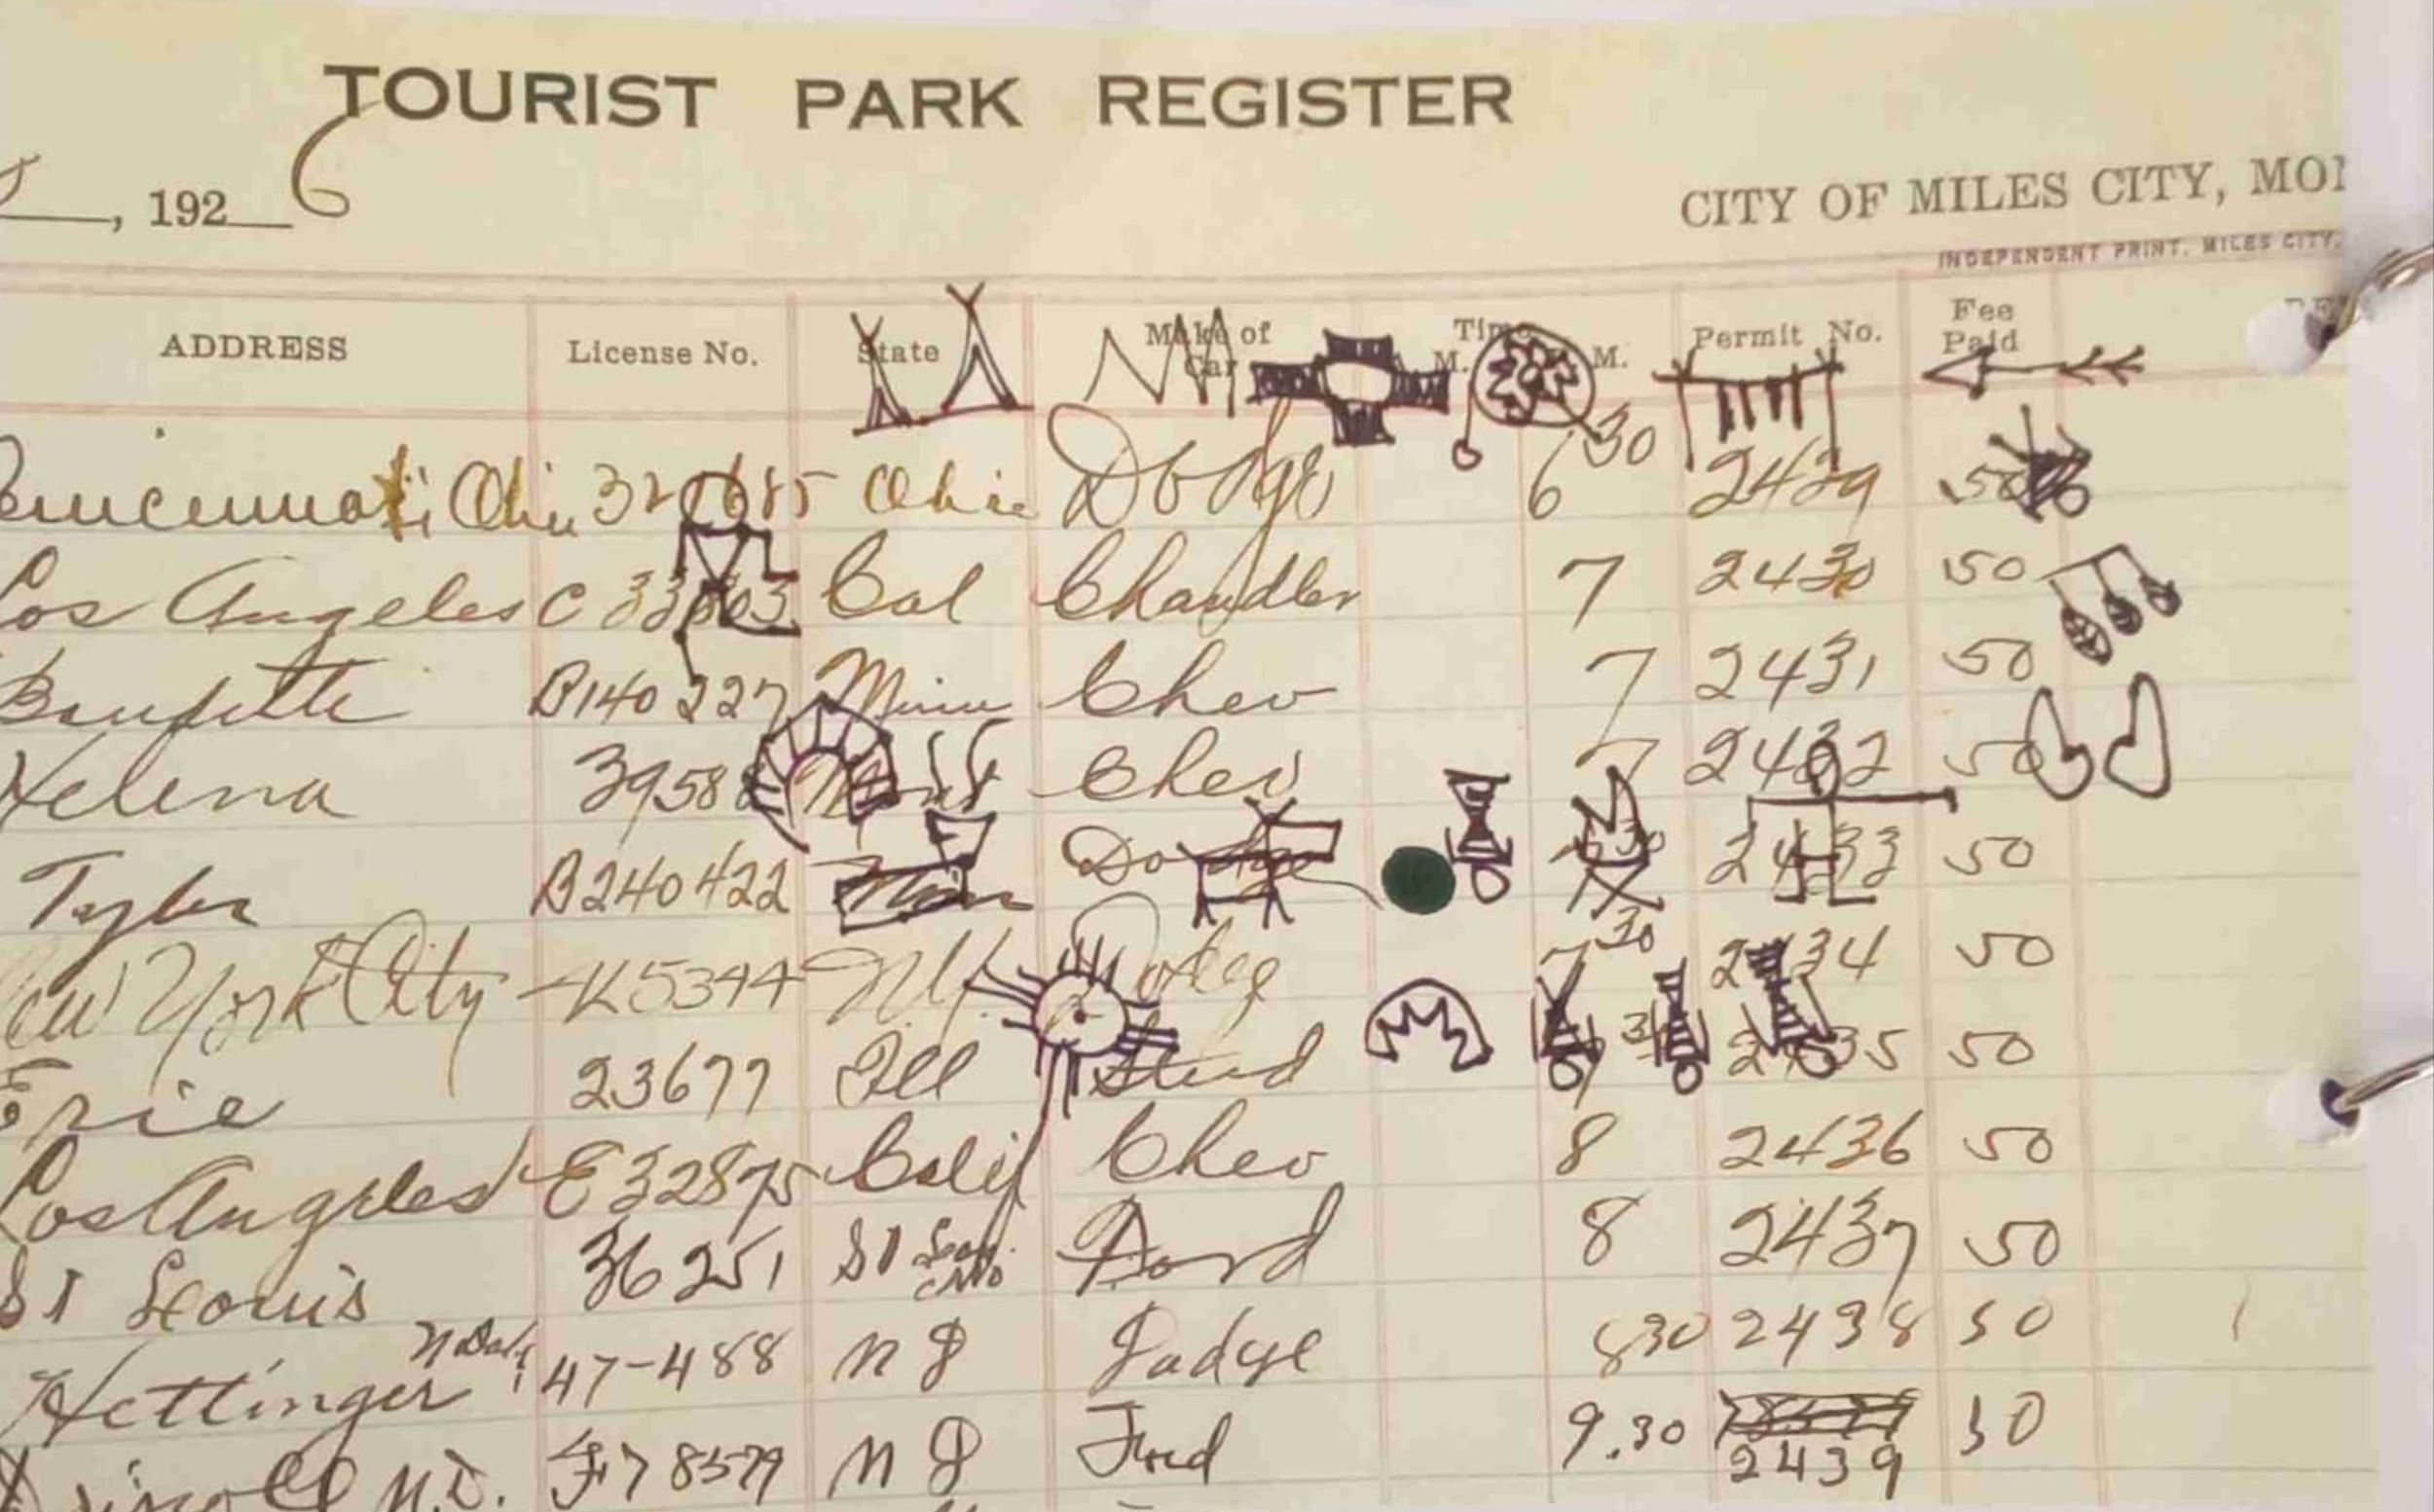 TOURIST PARK REGISTER
, 192 6
CITY OF MILES CITY, MO
INDEPENDENT PRINT, MILES CITY,
ADDRESS License No. State Make of Car Time M. M. Permit No. Fee Paid
Ohio Ohio Dodge 6 30 2429 50
Los Angeles Cal Chandler 7 2430 50
B140 227 Minn Chev 7 2431 50
Helena 3958 Chev 7 2432 50
Tyler B240422 Minn Dodge 30 2433 50
New York City K5344 N.Y. Dodge 7 30 2434 50
Erie 23677 Ill Stud 2435 50
Los Angeles E32875 Calif Chev 8 2436 50
St Louis 36251 St Mo Ford 8 2437 50
Hettinger N Dak 47-488 N D Dodge 8 30 2438 50
N.D. 78579 N D Ford 9.30 2439 50